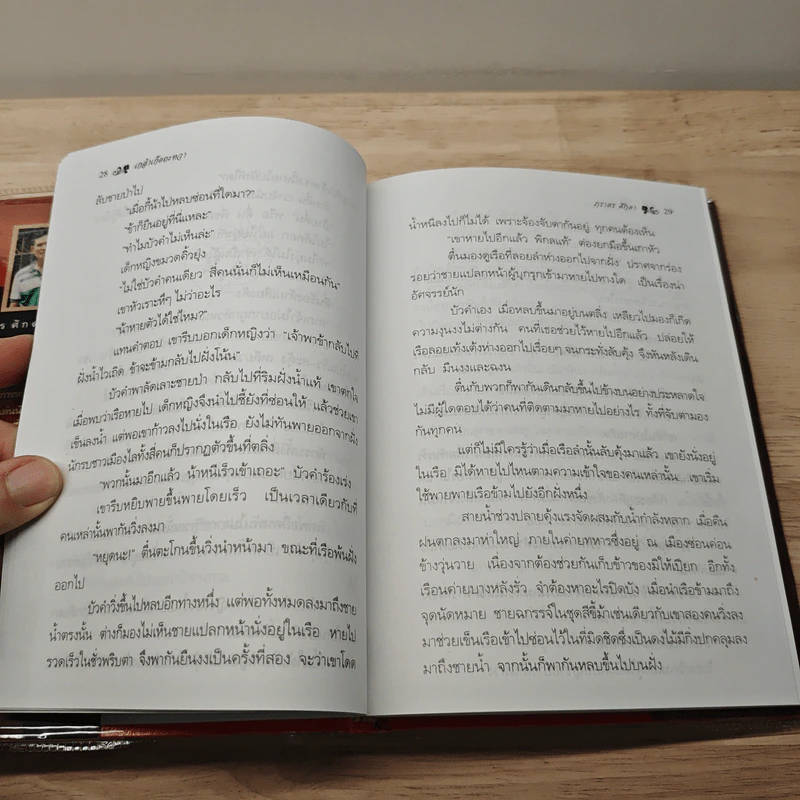 28
ลับชายป่าไป
"เมื่อกี้น้าไปหลบซ่อนที่ใดมา?"
"ข้าก็ยืนอยู่ที่นี่แหละ"
"ทำไมบัวคำไม่เห็นล่ะ"
เด็กหญิงขมวดคิ้วยุ่ง
"ไม่ใช่บัวคำคนเดียว สี่คนนั่นก็ไม่เห็นเหมือนกัน"
เขาหัวเราะหึๆ ไม่ว่าอะไร
"น้าหายตัวได้ใช่ไหม?"
แทนคำตอบ เขารีบบอกเด็กหญิงว่า "เจ้าพาข้ากลับไปที่
ฝั่งน้ำไวเถิด ข้าจะข้ามกลับไปฝั่งโน้น"
บัวคำพาลัดเลาะชายป่า กลับไปที่ริมฝั่งน้ำแท้ เขาตกใจ
เมื่อพบว่าเรือหายไป เด็กหญิงจึงนำไปชี้ยังที่ซ่อนให้ แล้วช่วยเขา
เข็นลงน้ำ แต่พอเขาก้าวลงไปนั่งในเรือ ยังไม่ทันพายออกจากฝั่ง
นักรบชาวเมืองไลทั้งสี่คนก็ปรากฏตัวขึ้นที่ตลิ่ง
"พวกนั้นมาอีกแล้ว น้าหนีเร็วเข้าเถอะ" บัวคำร้องเร่ง
เขารีบหยิบพายขึ้นพายโดยเร็ว เป็นเวลาเดียวกับที่
คนเหล่านั้นพากันวิ่งลงมา
"หยุดนะ!" ตื่นตะโกนขึ้นวิ่งนำหน้ามา ขณะที่เรือพ้นฝั่ง
ออกไป
บัวคำวิ่งขึ้นไปหลบอีกทางหนึ่ง แต่พอทั้งหมดลงมาถึงชาย
น้ำตรงนั้น ต่างก็มองไม่เห็นชายแปลกหน้านั่งอยู่ในเรือ หายไป
รวดเร็วในชั่วพริบตา จึงพากันยืนงงเป็นครั้งที่สอง จะว่าเขาโดด
ภราดร ศักดา 29
น้ำหนีลงไปก็ไม่ได้ เพราะจ้องจับตากันอยู่ ทุกคนต้องเห็น
"เขาหายไปอีกแล้ว พิกลแท้" ต่องยกมือขึ้นเกาหัว
ตื่นมองดูเรือที่ลอยลำห่างออกไปจากฝั่ง ปราศจากร่อง
รอยว่าชายแปลกหน้าผู้บุกรุกเข้ามาหายไปทางใด เป็นเรื่องน่า
อัศจรรย์นัก
บัวคำเอง เมื่อหลบขึ้นมาอยู่บนตลิ่ง เหลียวไปมองก็เกิด
ความงุนงงไม่ต่างกัน คนที่เธอช่วยไว้หายไปอีกแล้ว ปล่อยให้
เรือลอยเท้งเต้งห่างออกไปเรื่อยๆ จนกระทั่งลับคุ้ง จึงหันหลังเดิน
กลับ มึนงงและฉงน
ตื่นกับพวกก็พากันเดินกลับขึ้นไปข้างบนอย่างประหลาดใจ
ไม่มีผู้ใดตอบได้ว่าคนที่ติดตามมาหายไปอย่างไร ทั้งที่จับตามอง
กันทุกคน
แต่ก็ไม่มีใครรู้ว่าเมื่อเรือลำนั้นลับคุ้งมาแล้ว เขายังนั่งอยู่
ในเรือ มิได้หายไปไหนตามความเข้าใจของคนเหล่านั้น เขาเริ่ม
ใช้พายพายเรือข้ามไปยังอีกฝั่งหนึ่ง
สายน้ำช่วงปลายคุ้งแรงจัดผสมกับน้ำกำลังหลาก เมื่อคืน
ฝนตกลงมาห่าใหญ่ ภายในค่ายทหารซึ่งอยู่ ณ เมืองซ่อนค่อน
ข้างวุ่นวาย เนื่องจากต้องช่วยกันเก็บข้าวของมิให้เปียก อีกทั้ง
เรือนค่ายบางหลังรั่ว จำต้องหาอะไรปิดบัง เมื่อนำเรือข้ามมาถึง
จุดนัดหมาย ชายฉกรรจ์ในชุดสีขี้ม้าเช่นเดียวกับเขาสองคนวิ่งลง
มาช่วยเข็นเรือเข้าไปซ่อนไว้ในที่มิดชิดซึ่งเป็นดงไม้มีกิ่งปกคลุมลง
มาถึงชายน้ำ จากนั้นก็พากันหลบขึ้นไปบนฝั่ง